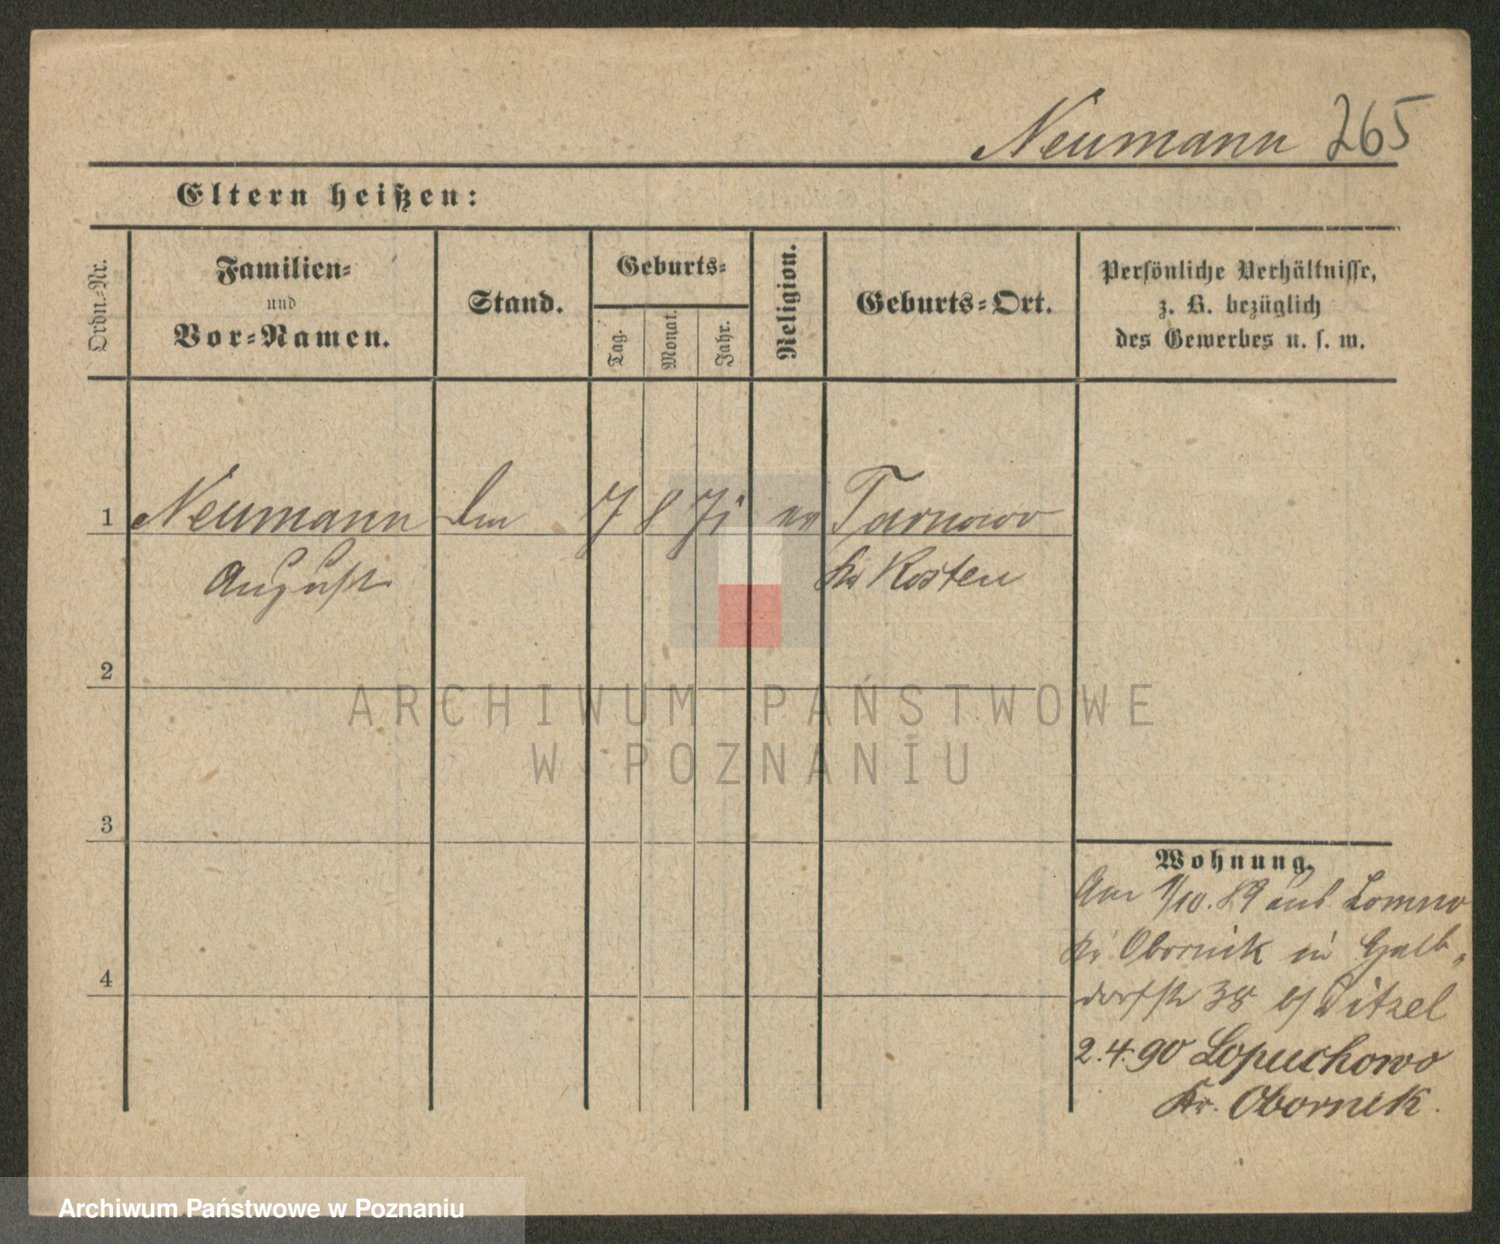 Neumann 265
Eltern heißen:
Ordn.-Nr.
Familien-
und
Vor-Namen.
Stand.
Geburts-
Tag.
Monat.
Jahr.
Religion.
Geburts-Ort.
Persönliche Verhältnisse,
z. B. bezüglich
des Gewerbes u. s. w.
1 Neumann 7 8 71 Tarnowo
August Kr Kosten
2
3
4
ARCHIWUM PAŃSTWOWE
W POZNANIU
Wohnung.
Am 1/10. 89 aus Lomno
Kr Obornik in Halb-
dorfstr 38 b/ Ditzel
2.4.90 Lopuchowo
Kr. Obornik.
Archiwum Państwowe w Poznaniu